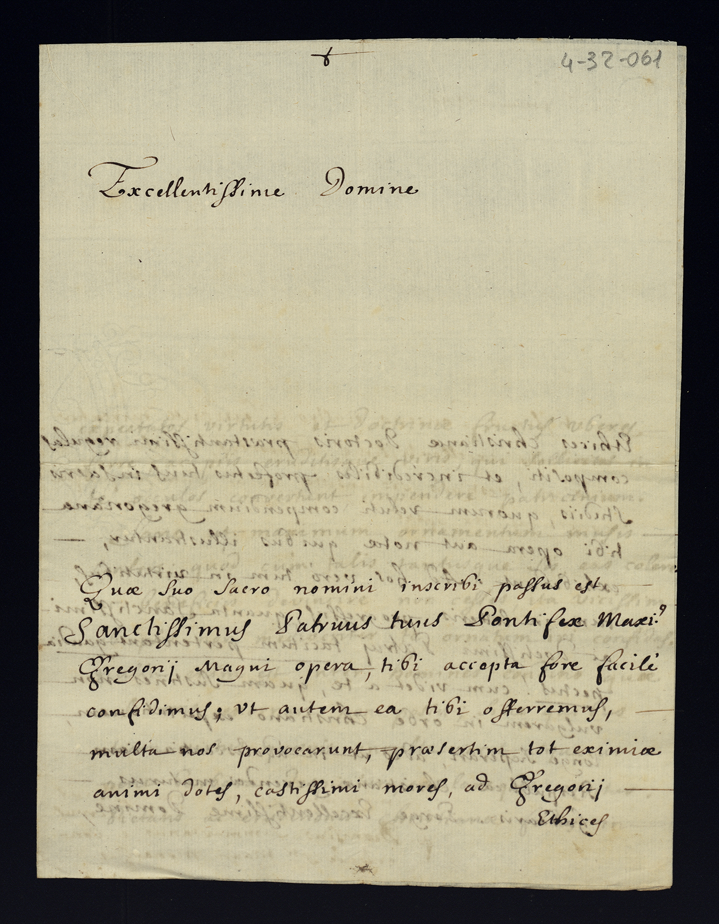 4-32-061
Excellentissime Domine
Quæ suo sacro nomini inscribi passus est
Sanctissimus Patruus tuus Pontifex Maxi.⁹
Gregorij Magni opera, tibi accepta fore facilè
confidimus; ut autem ea tibi offerremus,
multa nos provocarunt, præsertim tot eximiæ
animi dotes, castissimi mores, ad Gregorij
Ethices